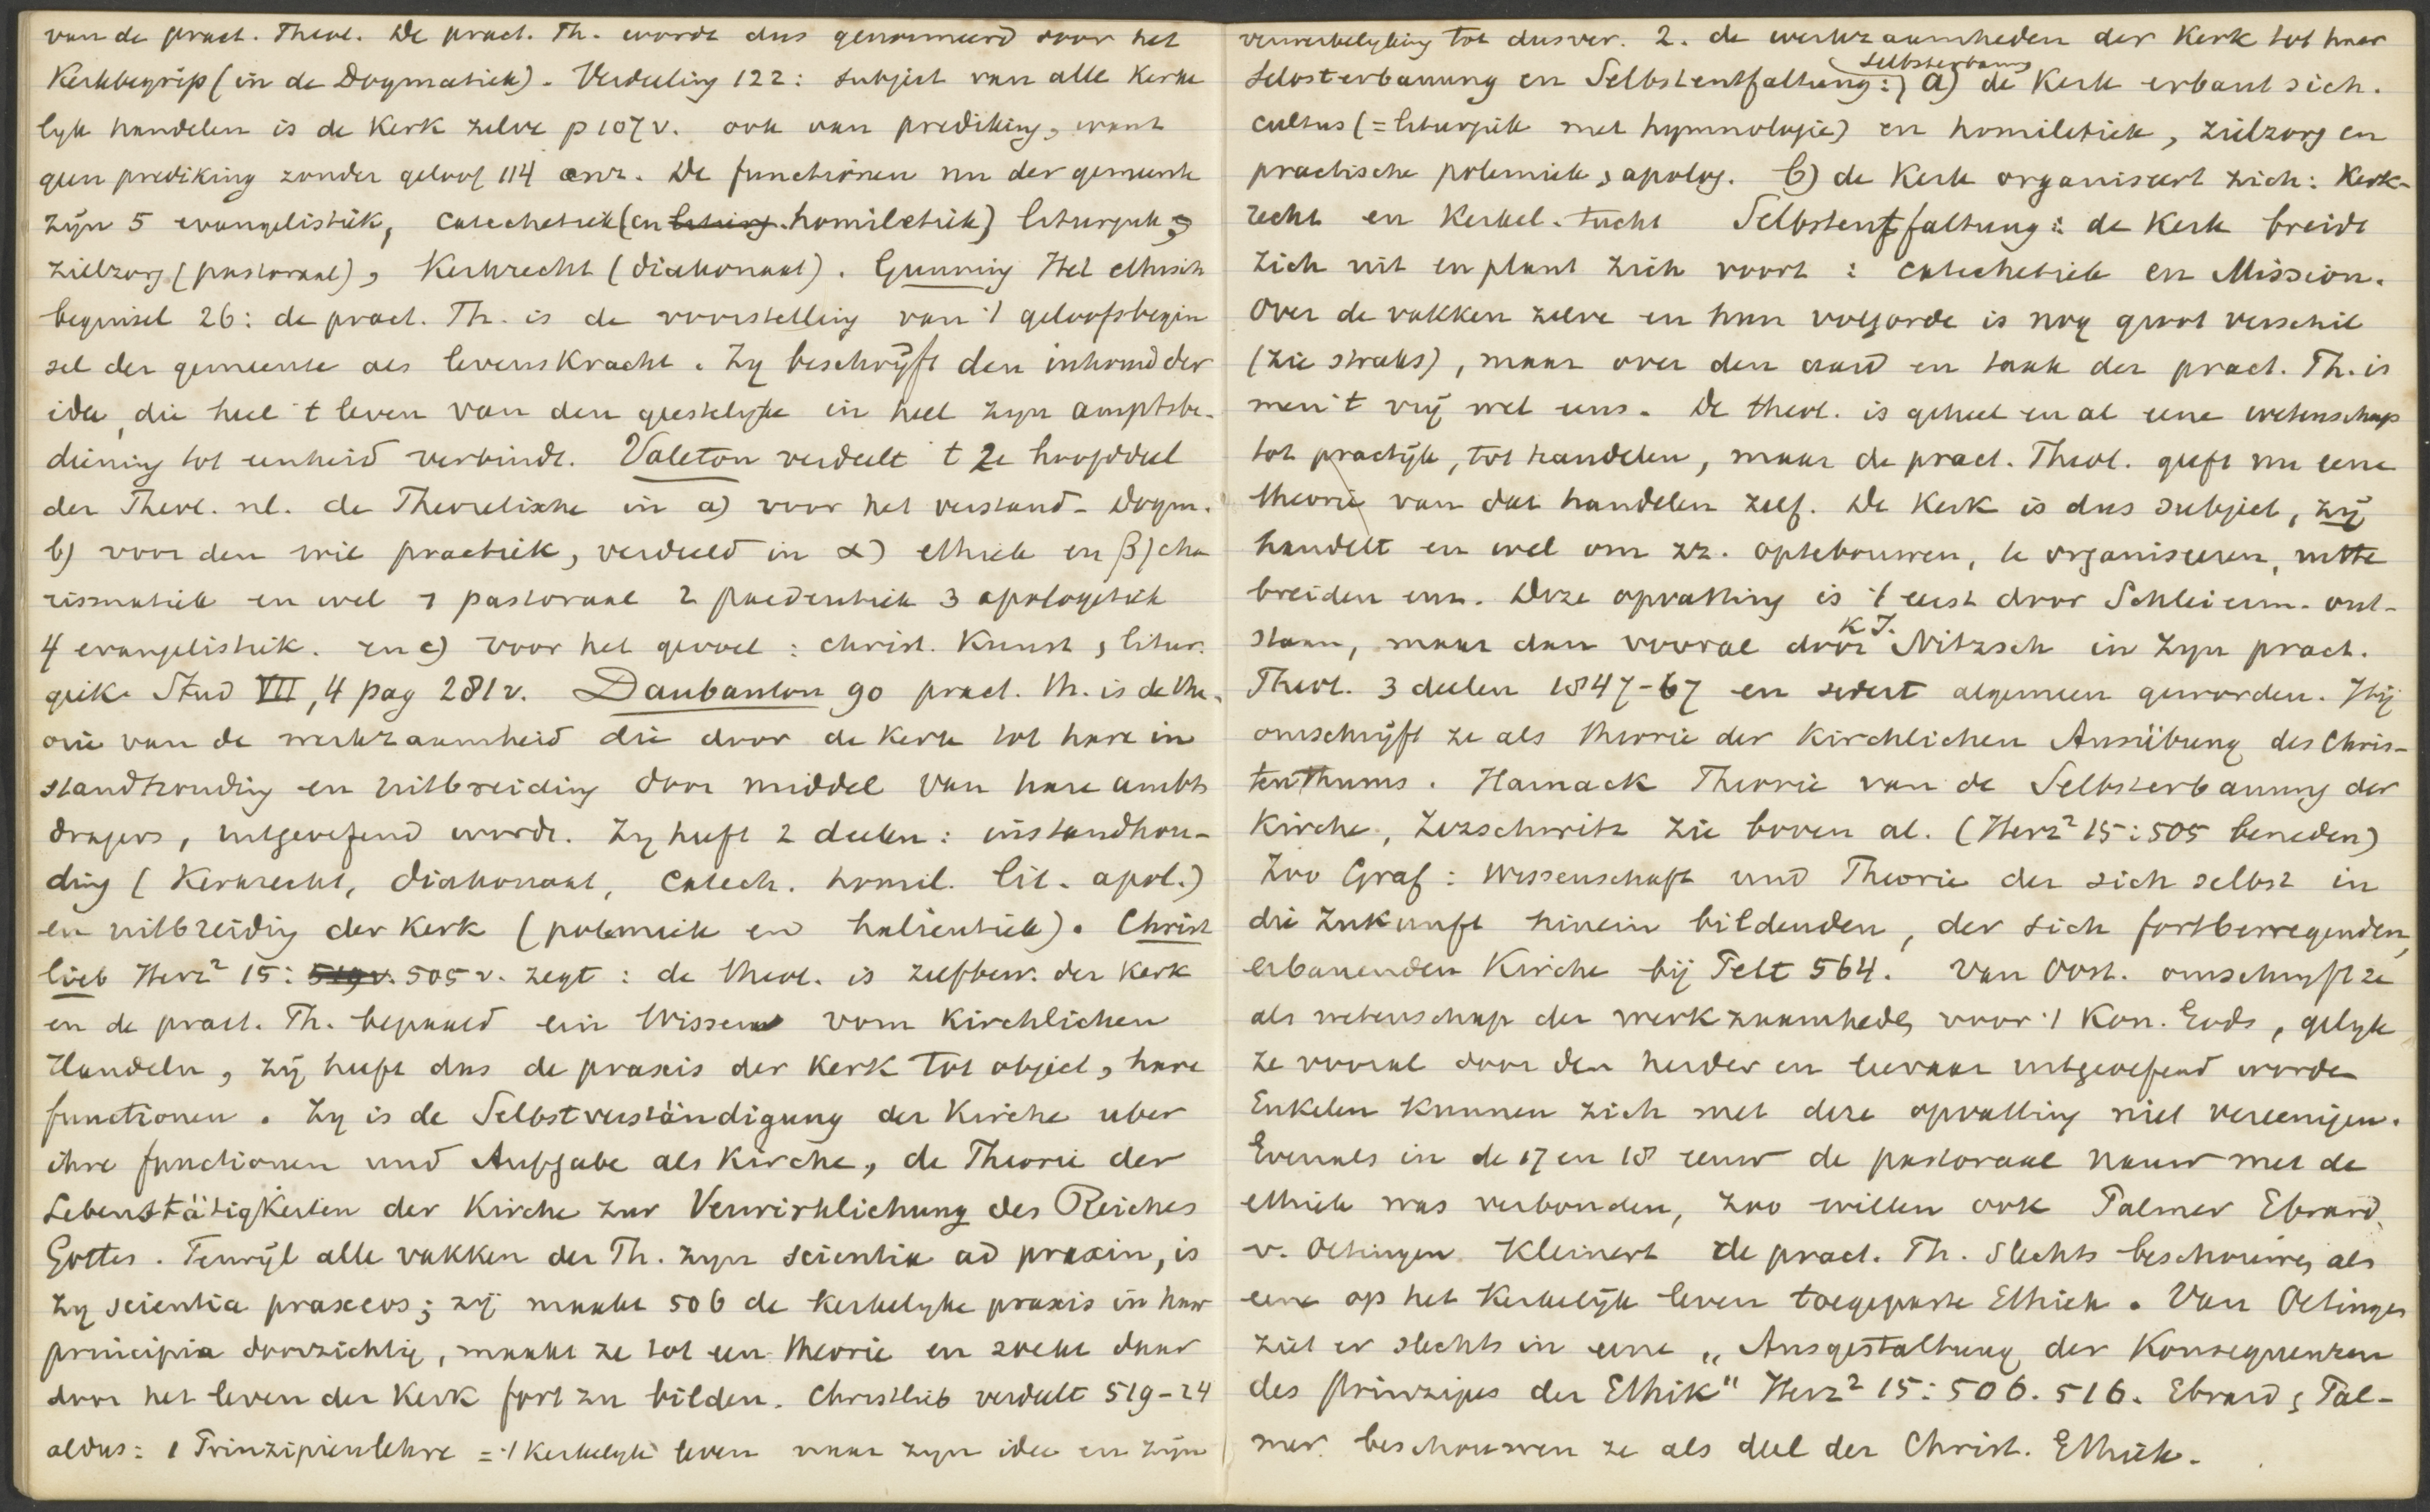 van de pract. Theol. De pract. Th. wordt dus genormeerd door het
Kerkbegrip (in de Dogmatiek). Verdeeling 122: subject van alle kerke
lyk handelen is de Kerk zelve p 107 v. ook van prediking, want
geen prediking zonder geloof 114 enz. De functiönen nu der gemeente
zijn 5 evangelistiek, catechetiek (en liturg. homiletiek) liturgiek, 
zielzorg (pastoraal), Kerkrecht (diakonaat). Gunning Het ethisch
beginsel 26: de pract. Th. is de voorstelling van 't geloofsbegin
sel der gemeente als levenskracht. Zy beschrijft den inhoud der
idee, die heel 't leven van den geestelyke in heel zyn amptsbe-
diening tot eenheid verbindt. Valeton verdeelt t 2e hoofddeel
der Theol. nl. de Theoretische in a) voor het verstand - Dogm.
b) voor den wil practiek, verdeeld in α) ethiek en β) cha
rismatiek en wel 1 pastoraal 2 paedeutiek 3 apologetiek
4 evangelistiek. en c) voor het gevoel: christ. Kunst, litur.
giek. Stud VII, 4 pag 281 v. Daubanton 90 pract. th. is de the-
orie van de werkzaamheid die door de kerk tot hare in
standhouding en uitbreiding door middel van hare ambts
dragers, uitgeoefend wordt. Zy heeft 2 deelen: instandhou-
ding (Kerkrecht, diakonaat, catech. homil. lit. apol.)
en uitbreiding der Kerk (polemiek en halieutiek). Christ
lieb Herz² 15: 519 v. 505 v. zegt: de theol. is zelfbew. der Kerk
en de pract. Th. bepaald ein Wissen vom Kirchlichen
Handeln, zij heeft dus de praxis der Kerk tot object, hare
functionen. Zy is de Selbstverständigung der Kirche uber
ihre functionen und Aufgabe als Kirche, de Theorie der
Lebenstätigkeiten der Kirche zur Verwirklichung des Reiches
Gottes. Terwijl alle vakken der Th. zyn scientia ad praxin, is
zy scientia praxeos; zij maakt 506 de kerkelyke praxis in haar
principia doorzichtig, maakt ze tot een theorie en zoekt daar
door het leven der Kerk fort zu bilden. Christlieb verdeelt 519-24
aldus: 1 Prinzipienlehre = 't Kerkelyk leven naar zyn idee en zijn
verwerkelyking tot dusver. 2. de werkzaamheden der Kerk tot haar
Selbsterbauung en Selbstentfaltung: Selbsterbauung a) de Kerk erbaut sich.
cultus (= liturgiek met hymnologie) en homiletiek, zielzorg en
practische polemiek, apolog. b) de Kerk organiseert zich: Kerk-
recht en Kerkel. tucht Selbstentfaltung: de Kerk breidt
zich uit en plant zich voort: catechetiek en Mission.
Over de vakken zelve en hun volgorde is nog groot verschil
(zie straks), maar over den aard en taak der pract. Th. is
men 't vrij wel eens. De theol. is geheel en al eene wetenschap
tot practijk, tot handelen, maar de pract. Theol. geeft nu eene
theorie van dat handelen zelf. De Kerk is dus subject, zij
handelt en wel om zz. optebouwen, te organiseeren, uitte
breiden enz. Deze opvatting is 't eerst door Schleierm. ont-
staan, maar dan vooral door K J. Nitzsch in zyn pract.
Theol. 3 deelen 1847-67 en sedert algemeen geworden. Hij
omschrijft ze als theorie der Kirchlichen Ausübung des Chris-
tenthums. Harnack Theorie van de Selbsterbauung der
Kirche, Zezschwitz zie boven al. (Herz² 15: 505 beneden)
Zoo Graf: Wissenschaft und Theorie der sich selbst in
die Zukunft hinein bildenden, der sich fortbewegenden,
erbauenden Kirche bij Pelt 564. Van Oost. omschryft ze
als wetenschap der werkzaamheden voor 't Kon. Gods, gelyk
ze vooral door den herder en leeraar uitgeoefend worden
Enkelen kunnen zich met deze opvatting niet vereenigen.
Evenals in de 17 en 18 eeuw de pastoraal nauw met de
ethiek was verbonden, zoo willen ook Palmer Ebrard,
v. Oetingen Kleinert de pract. Th. slechts beschouwen als
eene op het Kerkelijk leven toegepaste Ethiek. Van Oetingen
ziet er slechts in eene „Ausgestaltung der Konsequenzen
des Prinzips der Ethik" Herz² 15: 506. 516. Ebrard, Pal-
mer beschouwen ze als deel der Christ. Ethiek.